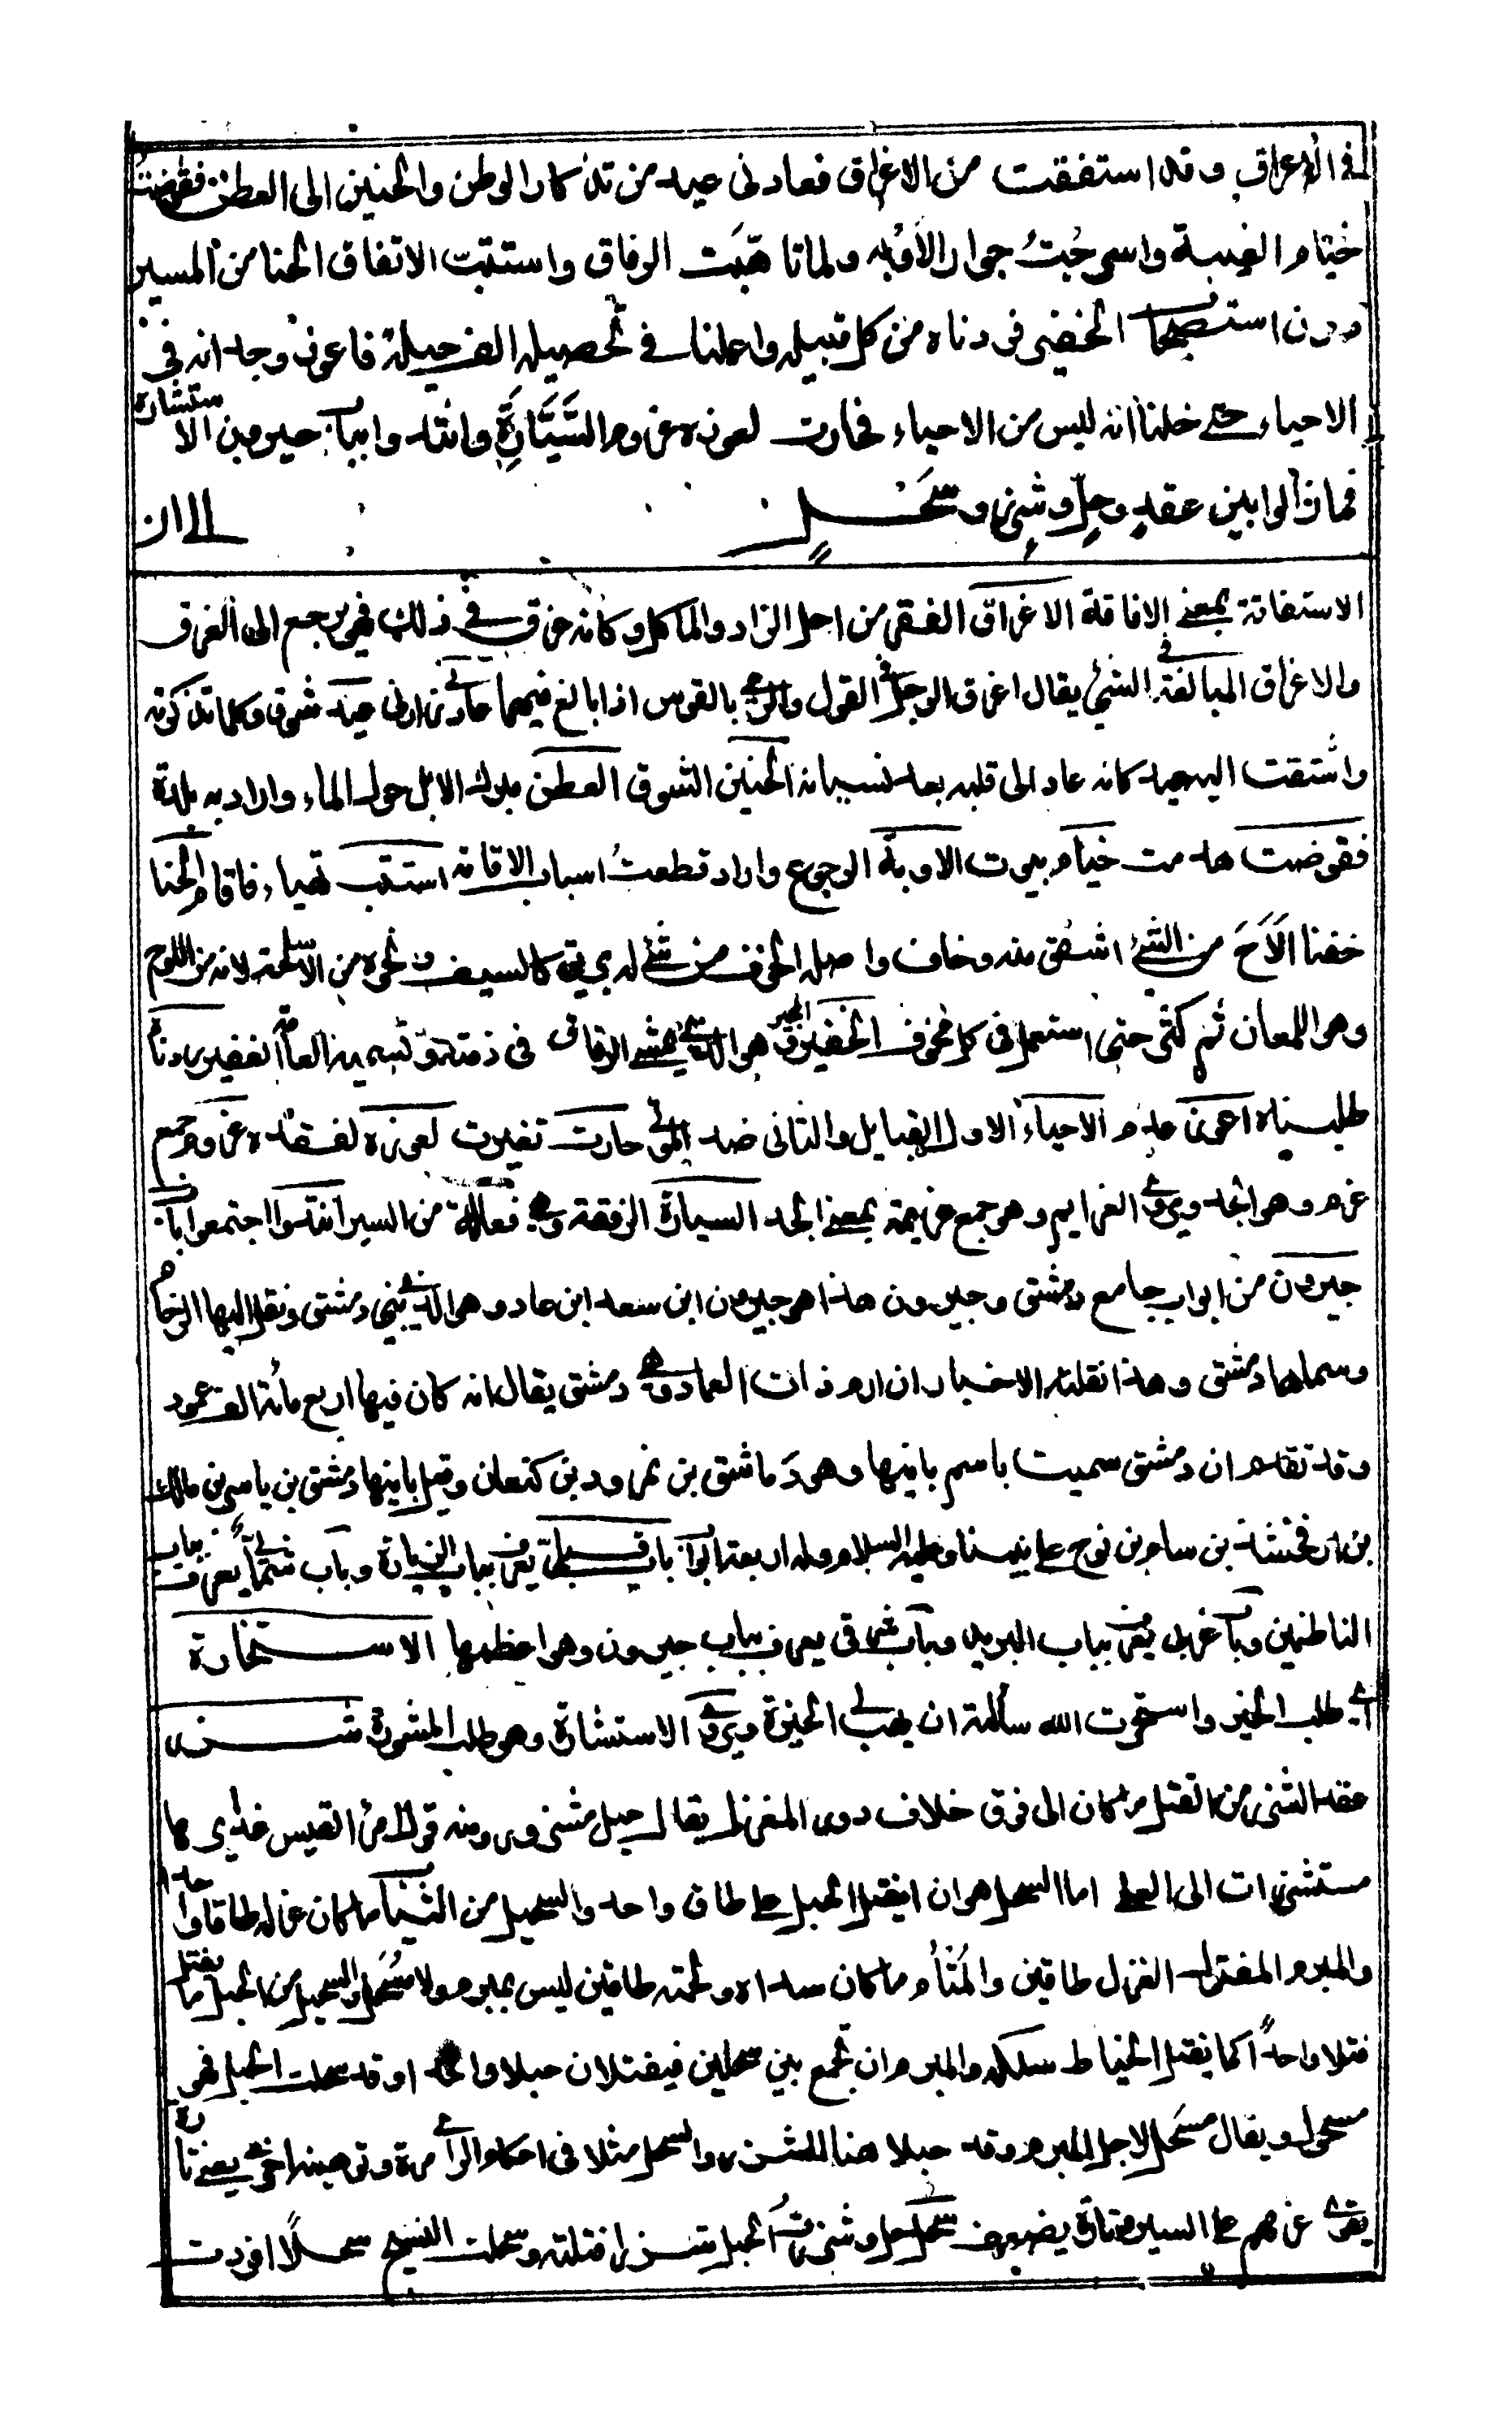 في الإعراق وقد استفقت من الاغراق فعادنى عيد من تذكار الوطن والحنين الى العطن فقوضت
خيام الغيبة واسرجت جواد الأوبة ولما تأهبت الرفاق واستتبت الاتفاق الحنا من المسير
دون استصحاب الخفير فردناه من كل قبيلة واعملنا في تحصيله الف حيلة فاعوز وجدانه في
الاحياء حتى خلنا انه ليس من الاحياء فحارت لعوزه عزوم السَّيَّارَةِ وانتدوا بباب جيرون الاستشارة
فما زالوا بين عقدٍ وحلٍّ وشزرٍ وسَحْلٍ الى ان
الاستفاقة بمعنى الافاقة الاغراق الفقر من اجل الزاد والماكل وكانه غرق في ذلك فهو يرجع الى الغرق
والاغراق المبالغة في الشئ يقال اغرق الرجل في القول والرمي بالقوس اذا بالغ فيهما عادنى اى اتانى عيد شوق وكلما تذكرته
واشتقت اليه عيد كانه عاد الى قلبه بعد نسيانه الحنين الشوق العطن مبرك الابل حول الماء واراد به بلدة
فقوضت هدمت خيام بيوت الاوبة الرجوع واراد قطعتُ اسباب الاقامة استتب تهياء فاقام الحنا
خفنا اَلَاحَ من الشئ اشفق منه وخاف واصله الخوف من شئ له بريق كالسيف ونحوه من الاسلحة لانه من اللوح
وهو اللمعان ثم كثر حتى استعمل في كل مخوف الخفير المجير هو الذي يمشي الرفاق فى ذمته وتسميه العامة الغفير ردناه
طلبناه اعوز عدم الاحياء الاول القبايل والثانى ضد الموتى حارت تغيرت لعوزه لفقده عزوم جمع
عزم وهو الجد ويروى العزايم وهو جمع عزيمة بمعنى الجد السيارة الرفقة وهي فعالة من السير انتدوا اجتمعوا باب
جيرون من ابواب جامع دمشق وجيرون هذا هو جيرون ابن سعد ابن عاد وهو الذي بنى دمشق ونقل اليها الرخام
وسماها دمشق وهذا نقلته الاخبار ان ارم ذات العماد هي دمشق يقال انه كان فيها اربع مائة الف عمود
وقد تقدم ان دمشق سميت باسم بانيها وهو دماشق بن نمرود بن كنعان وقيل بانيها دمشق بن ياسر بن مالك
بن ارفخشذ بن سام بن نوح على نبينا وعليه السلام وله اربعة ابواب باب قبلى يعرف بباب الزيادة وباب شمالى يعرف بباب
الناطفين وباب غربى يعرف بباب البريد وباب شرقى يعرف بباب جيرون وهو اعظمها الاستخارة
اى طلب الخير واستخرت الله سألته ان يهب لى الخيرة ويروى الاستشارة وهو طلب المشورة شزر
عقد الشزر من الفتل ما كان الى فوق خلاف دور المغزل يقال حبل مشزور ومنه قول امرئ القيس غدايرها
مستشزرات الى العلى اما السحل هو ان يفتل الحبل على طاق واحد والسحيل من الثياب ما كان غزله طاقا واحدا
والمبرم المفتول الغزل طاقين والمتأم ما كان سداه ولحمته طاقين ليس بمبرم ولا مسحل والسحيل من الحبل ما يفتل
فتلا واحداً كما يفتل الخياط سلكه والمبرم ان تجمع بين سحيلين فيفتلان حبلا واحدا وقد سحلت الحبل فهو
مسحول ويقال مسحل لاجل المبرم وقد حبلا هنا للشزر والسحل مثلا فى احكام الراى مرة وتوهينه اخرى يعنى تارة
يقوى عزمهم على السير وتارة يضعف سحل وشزرتُ الحبل شزرا فتلته وسحلت النسيج سحلاً افردت